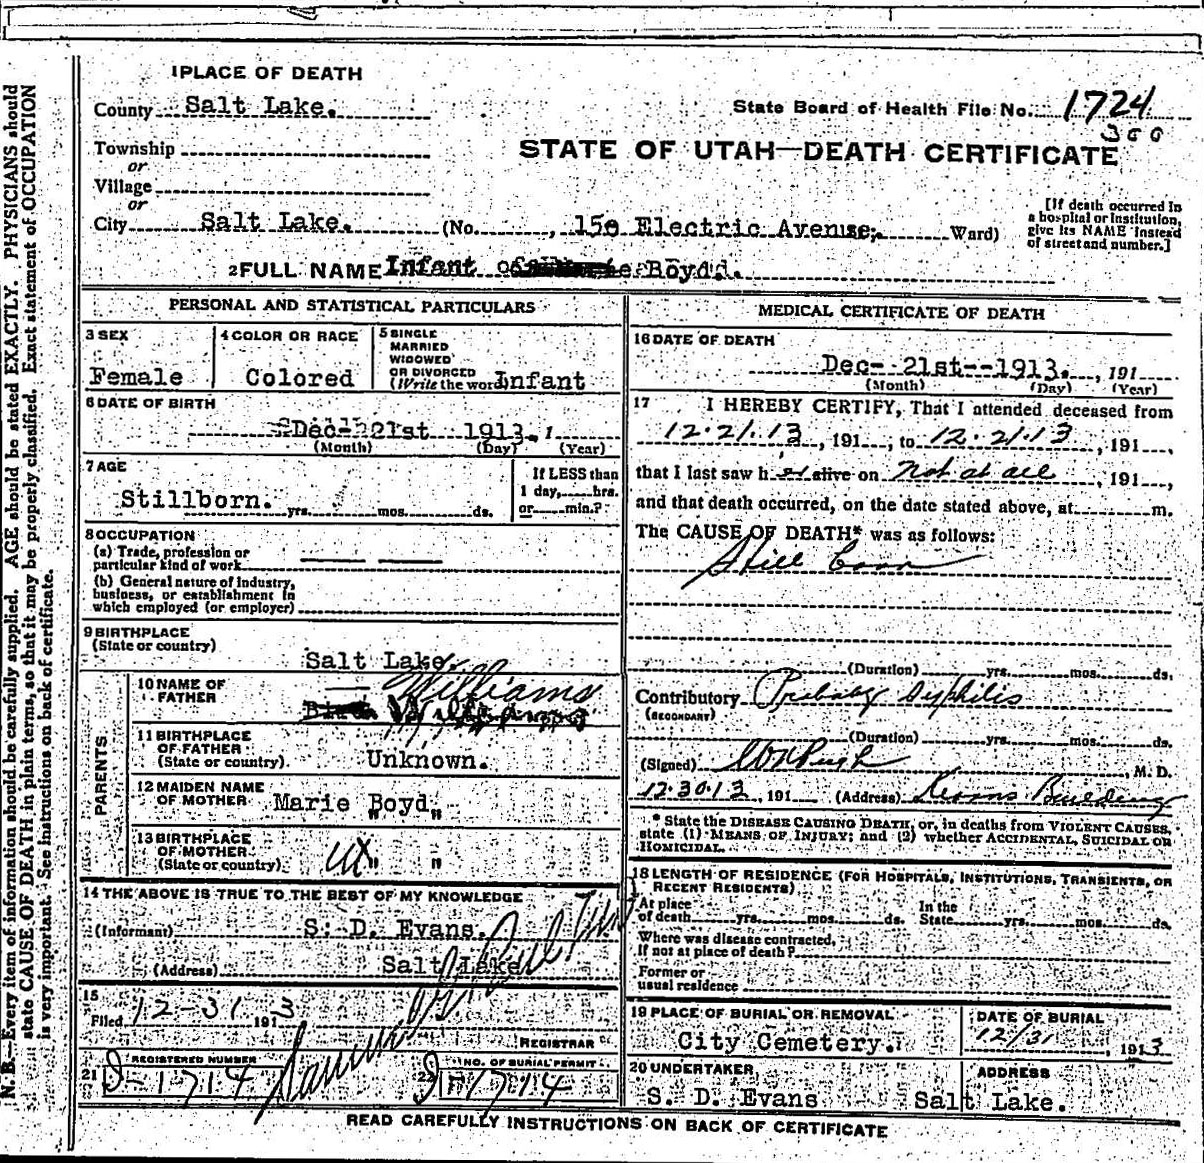 1 PLACE OF DEATH
County Salt Lake.
State Board of Health File No. 1724
300
Township
or
Village
or
STATE OF UTAH—DEATH CERTIFICATE
City Salt Lake. (No. , 150 Electric Avenue, Ward)
[If death occurred in
a hospital or institution,
give its NAME instead
of street and number.]
2 FULL NAME Infant of Boyd.
PERSONAL AND STATISTICAL PARTICULARS
3 SEX
Female
4 COLOR OR RACE
Colored
5 SINGLE
MARRIED
WIDOWED
OR DIVORCED
(Write the word) Infant
6 DATE OF BIRTH
Dec- 21st 1913. 1
(Month) (Day) (Year)
7 AGE
Stillborn. yrs. mos. ds.
If LESS than
1 day, hrs.
or min.?
8 OCCUPATION
(a) Trade, profession or
particular kind of work
(b) General nature of industry,
business, or establishment in
which employed (or employer)
9 BIRTHPLACE
(State or country)
Salt Lake.
PARENTS
10 NAME OF
FATHER
Williams
11 BIRTHPLACE
OF FATHER
(State or country) Unknown.
12 MAIDEN NAME
OF MOTHER Marie Boyd,
13 BIRTHPLACE
OF MOTHER
(State or country) " "
14 THE ABOVE IS TRUE TO THE BEST OF MY KNOWLEDGE
(Informant) S. D. Evans.
(Address) Salt Lake
15
Filed 12-31 1913
REGISTRAR
REGISTERED NUMBER
21 1714
NO. OF BURIAL PERMIT
22 1714
MEDICAL CERTIFICATE OF DEATH
16 DATE OF DEATH
Dec- 21st--1913. , 191
(Month) (Day) (Year)
17 I HEREBY CERTIFY, That I attended deceased from
12.21.13 , 191 , to 12.21.13 , 191 ,
that I last saw h er alive on Not at all , 191 ,
and that death occurred, on the date stated above, at m.
The CAUSE OF DEATH* was as follows:
Still Born
(Duration) yrs. mos. ds.
Contributory Probably Syphilis
(SECONDARY)
(Duration) yrs. mos. ds.
(Signed) Pugh , M. D.
12.30.13 , 191 (Address) Kearns Building
* State the DISEASE CAUSING DEATH, or, in deaths from VIOLENT CAUSES,
state (1) MEANS OF INJURY; and (2) whether ACCIDENTAL, SUICIDAL OR
HOMICIDAL.
18 LENGTH OF RESIDENCE (FOR HOSPITALS, INSTITUTIONS, TRANSIENTS, OR
RECENT RESIDENTS)
At place
of death yrs. mos. ds.
In the
State yrs. mos. ds.
Where was disease contracted,
If not at place of death?
Former or
usual residence
19 PLACE OF BURIAL OR REMOVAL
City Cemetery.
DATE OF BURIAL
12/31 , 1913
20 UNDERTAKER
S. D. Evans
ADDRESS
Salt Lake.
READ CAREFULLY INSTRUCTIONS ON BACK OF CERTIFICATE
N. B.—Every item of information should be carefully supplied. AGE should be stated EXACTLY. PHYSICIANS should
state CAUSE OF DEATH in plain terms, so that it may be properly classified. Exact statement of OCCUPATION
is very important. See instructions on back of certificate.